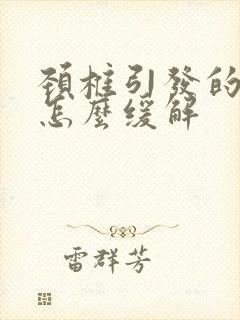 頸樁引發的
怎麼缓解
雷群芳